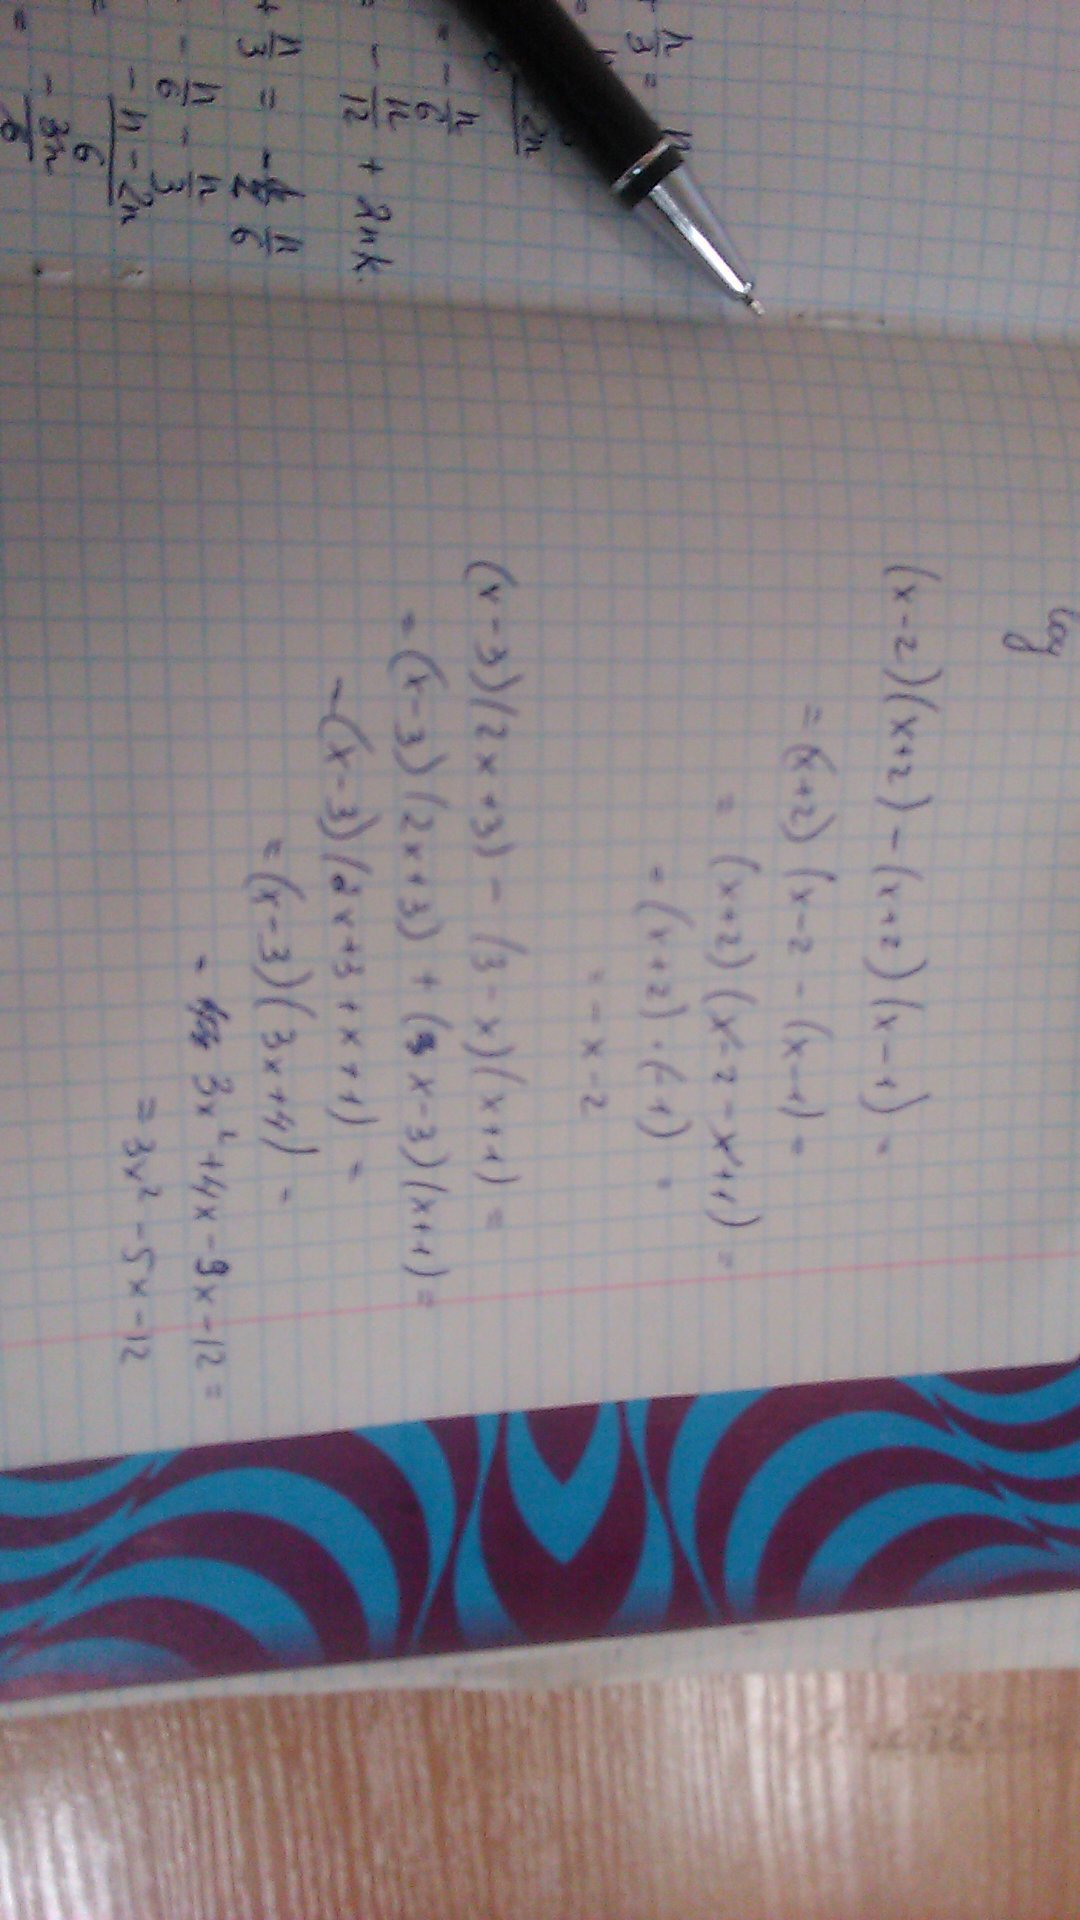 log
(x-2)(x+2) - (x+2)(x-1) =
= (x+2)(x-2 - (x-1) =
= (x+2)(x-2-x+1) =
= (x+2)·(-1) =
= -x-2
(x-3)(2x+3) - (3-x)(x+1) =
= (x-3)(2x+3) + (x-3)(x+1) =
- (x-3)(2x+3+x+1) =
= (x-3)(3x+4) -
- 3x²+4x-9x-12 =
= 3x²-5x-12
π/3 =
- π/6
- π/12 + 2πk.
+ π/3 = - π/6
- π/6 - π/3
-π-2π/6
- 3π/6